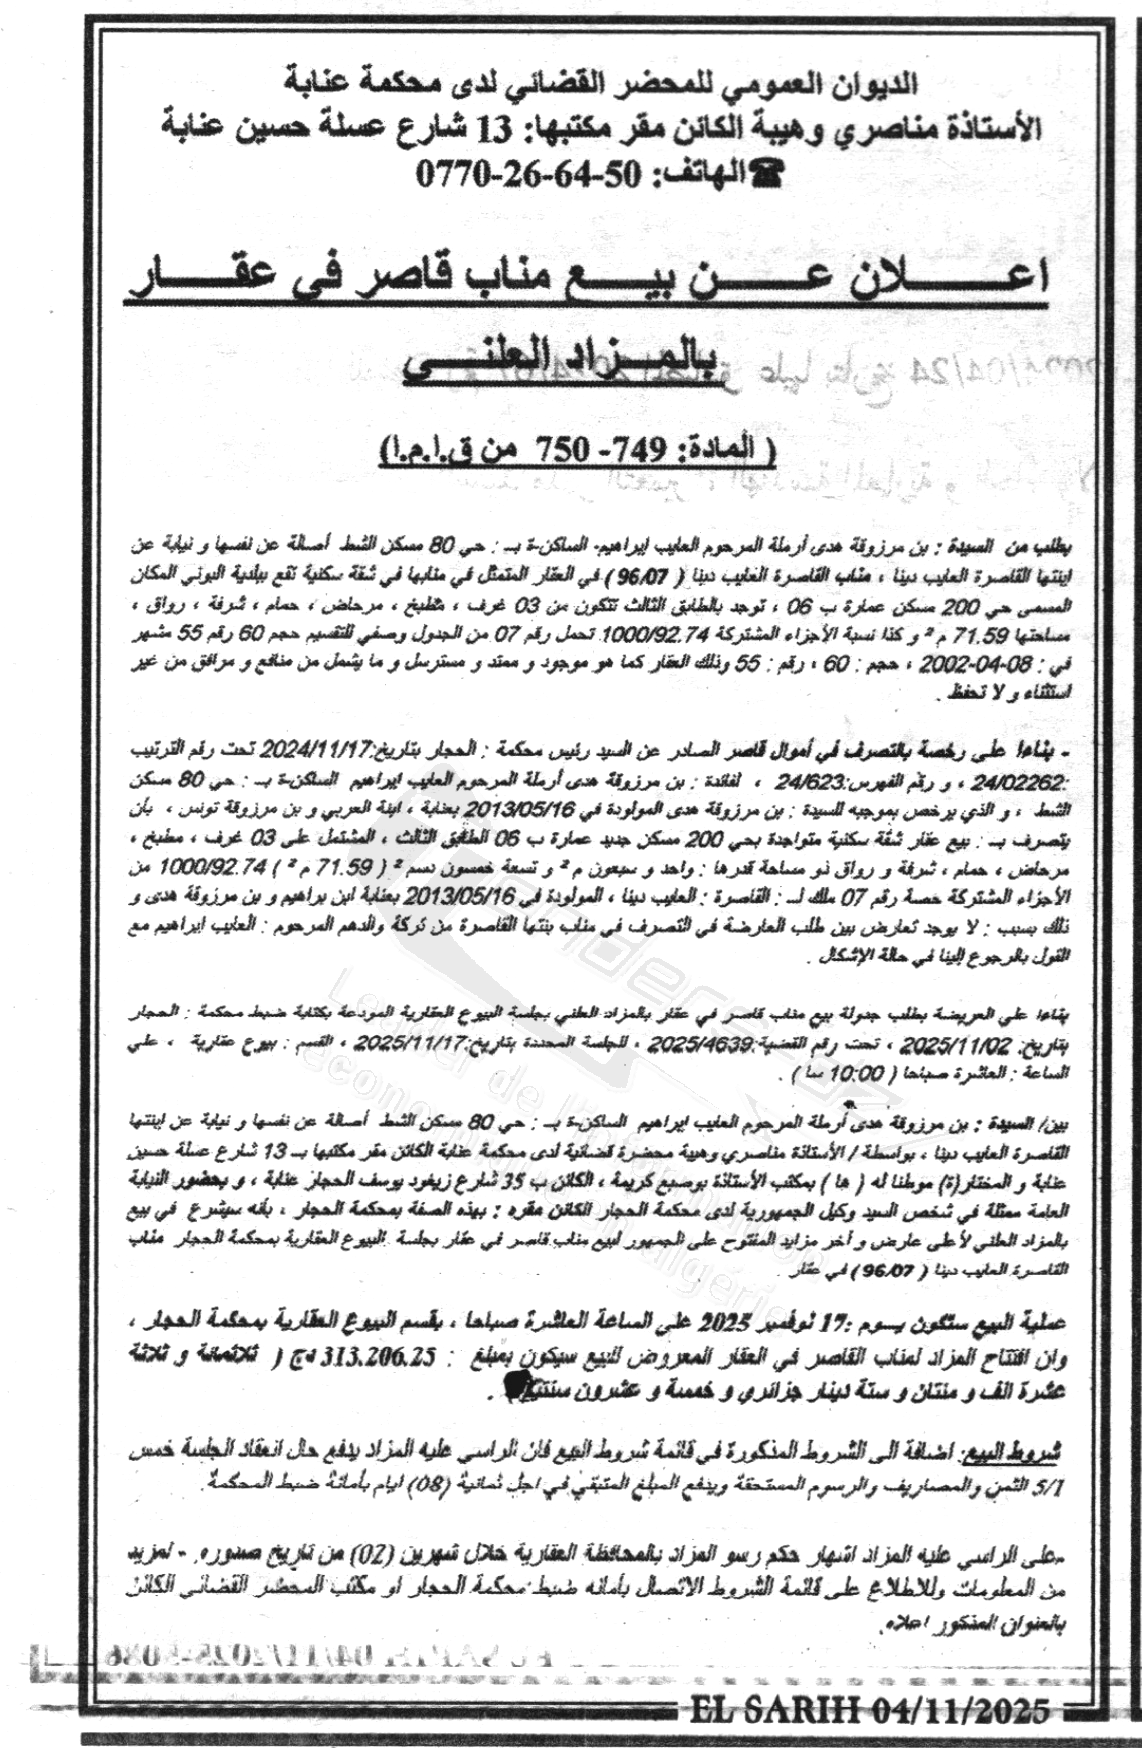 الديوان العمومي للمحضر القضائي لدى محكمة عنابة
الأستاذة مناصري وهيبة الكائن مقر مكتبها: 13 شارع عسلة حسين عنابة
☎الهاتف: 50-64-26-0770
اعـــلان عـــن بيـــع مناب قاصر في عقـــار
بالمـزاد العلنـي
( المادة: 749- 750 من ق.ا.م.ا)
بطلب من السيدة : بن مرزوقة هدى أرملة المرحوم العايب ابراهيم- الساكن-ة بـ : حي 80 مسكن الشط أصالة عن نفسها و نيابة عن
ابنتها القاصرة العايب دينا ، مناب القاصرة العايب دينا ( 96/07) في العقار المتمثل في منابها في شقة سكنية تقع ببلدية البوني المكان
المسمى حي 200 مسكن عمارة ب 06 ، توجد بالطابق الثالث تتكون من 03 غرف ، مطبخ ، مرحاض ، حمام ، شرفة ، رواق ،
مساحتها 71.59 م ² و كذا نسبة الأجزاء المشتركة 1000/92.74 تحمل رقم 07 من الجدول وصفي للتقسيم حجم 60 رقم 55 مشهر
في : 08-04-2002 ، حجم : 60 ، رقم : 55 وذلك العقار كما هو موجود و ممتد و مسترسل و ما يشمل من منافع و مرافق من غير
استثناء و لا تحفظ .
- بناءا على رخصة بالتصرف في أموال قاصر الصادر عن السيد رئيس محكمة : الحجار بتاريخ:2024/11/17 تحت رقم الترتيب
:24/02262 ، و رقم الفهرس:24/623 ، لفائدة : بن مرزوقة هدى أرملة المرحوم العايب ابراهيم الساكن-ة بـ : حي 80 مسكن
الشط ، و الذي يرخص بموجبه للسيدة : بن مرزوقة هدى المولودة في 2013/05/16 بعنابة ، ابنة العربي و بن مرزوقة تونس ، بأن
يتصرف بـ : بيع عقار شقة سكنية متواجدة بحي 200 مسكن جديد عمارة ب 06 الطابق الثالث ، المشتمل على 03 غرف ، مطبخ ،
مرحاض ، حمام ، شرفة و رواق ذو مساحة قدرها : واحد و سبعون م ² و تسعة خمسون دسم ² ( 71.59 م ² ) 1000/92.74 من
الأجزاء المشتركة حصة رقم 07 ملك لـ : القاصرة : العايب دينا ، المولودة في 2013/05/16 بعنابة ابن براهيم و بن مرزوقة هدى و
ذلك بسبب : لا يوجد تعارض بين طلب العارضة في التصرف في مناب بنتها القاصرة من تركة والدهم المرحوم : العايب ابراهيم مع
القول بالرجوع إلينا في حالة الإشكال .
بناءا على العريضة بطلب جدولة بيع مناب قاصر في عقار بالمزاد العلني بجلسة البيوع العقارية المودعة بكتابة ضبط محكمة : الحجار
بتاريخ: 2025/11/02 ، تحت رقم القضية:2025/4639 ، للجلسة المحددة بتاريخ:2025/11/17 ، القسم : بيوع عقارية ، على
الساعة : العاشرة صباحا ( 10:00 سا ) .
بين/ السيدة : بن مرزوقة هدى أرملة المرحوم العايب ابراهيم الساكن-ة بـ : حي 80 مسكن الشط أصالة عن نفسها و نيابة عن ابنتها
القاصرة العايب دينا ، بواسطة / الأستاذة مناصري وهيبة محضرة قضائية لدى محكمة عنابة الكائن مقر مكتبها بـ 13 شارع عسلة حسين
عنابة و المختار(ة) موطنا له ( ها ) بمكتب الأستاذة بوصبع كريمة ، الكائن ب 35 شارع زيغود يوسف الحجار عنابة ، و بحضور النيابة
العامة ممثلة في شخص السيد وكيل الجمهورية لدى محكمة الحجار الكائن مقره : بهذه الصفة بمحكمة الحجار ، بأنه سيشرع في بيع
بالمزاد العلني لأعلى عارض و أخر مزايد المفتوح على الجمهور لبيع مناب قاسر في عقار بجلسة البيوع العقارية بمحكمة الحجار مناب
القاصرة العايب دينا ( 96/07) في عقار
عملية البيع ستكون يـوم :17 نوفمبر 2025 على الساعة العاشرة صباحا ، بقسم البيوع العقارية بمحكمة الحجار ،
وان افتتاح المزاد لمناب القاصر في العقار المعروض للبيع سيكون بمبلغ : 313.206.25 دج ( ثلاثمائة و ثلاثة
عشرة الف و مئتان و ستة دينار جزائري و خمسة و عشرون .
شروط البيع: اضافة الى الشروط المذكورة في قائمة شروط البيع فان الراسي عليه المزاد يدفع حال انعقاد الجلسة خمس
5/1 الثمن والمصاريف والرسوم المستحقة ويدفع المبلغ المتبقي في اجل ثمانية (08) ايام بأمانة ضبط المحكمة.
-على الراسي عليه المزاد اشهار حكم رسو المزاد بالمحافظة العقارية خلال شهرين (02) من تاريخ صدوره. - لمزيد
من المعلومات وللاطلاع على قائمة الشروط الاتصال بأمانه ضبط محكمة الحجار او مكتب المحضر القضائي الكائن
بالعنوان المذكور اعلاه.
EL SARIH 04/11/2025